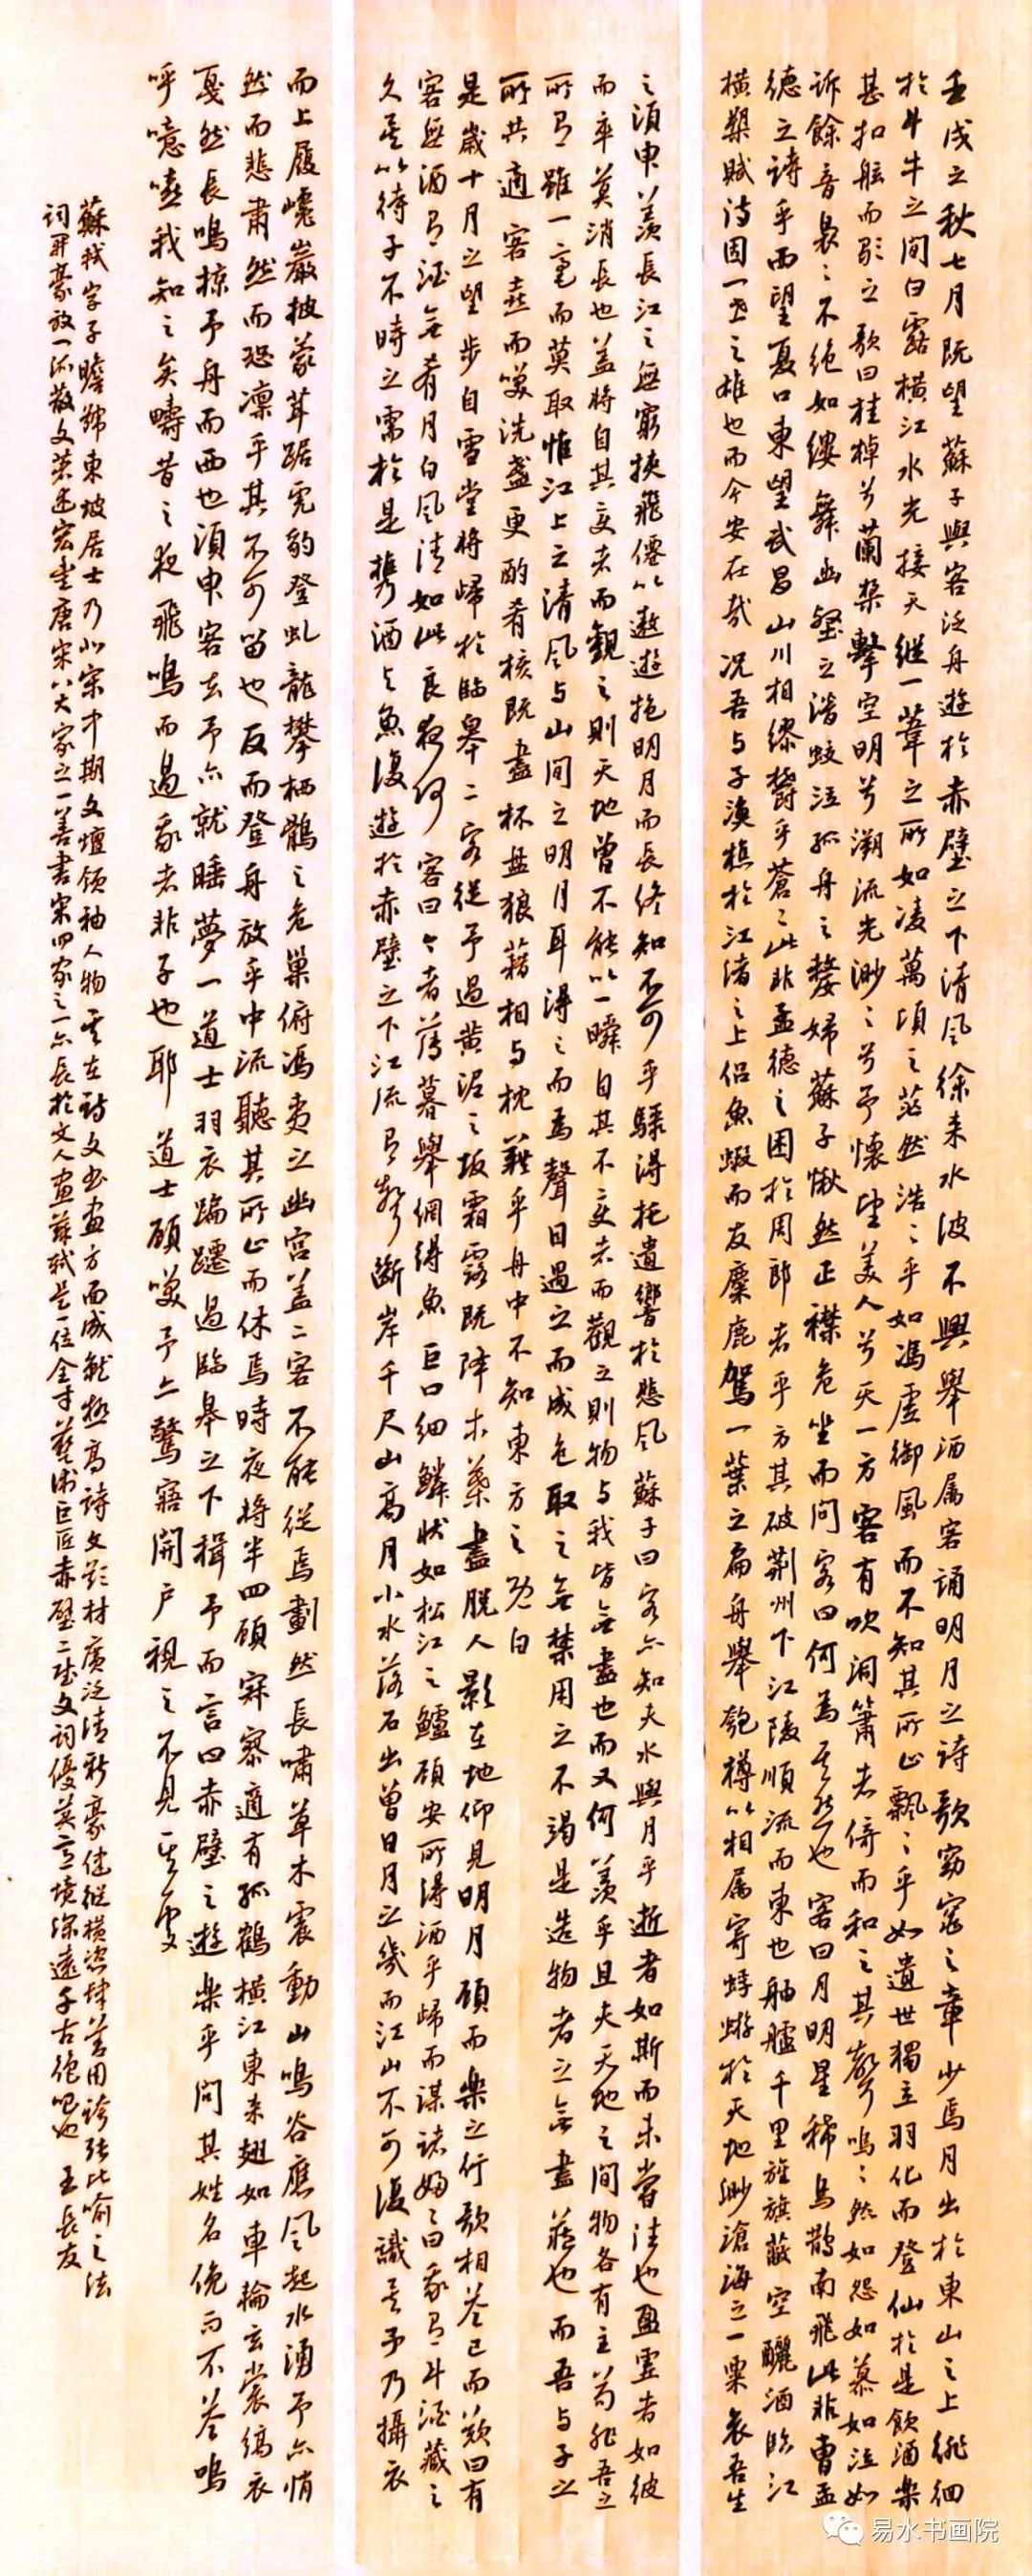 壬戌之秋七月既望蘇子與客泛舟遊於赤壁之下清風徐来水波不興舉酒属客誦明月之詩歌窈窕之章少焉月出於東山之上徘徊
於斗牛之間白露横江水光接天縱一葦之所如凌萬頃之茫然浩〻乎如馮虚御風而不知其所止飄〻乎如遺世獨立羽化而登仙於是飲酒樂
甚扣舷而歌之歌曰桂棹兮蘭槳擊空明兮溯流光渺〻兮予懷望美人兮天一方客有吹洞簫者倚而和之其聲嗚〻然如怨如慕如泣如
訴餘音裊〻不絶如縷舞幽壑之潜蛟泣孤舟之嫠婦蘇子愀然正襟危坐而问客曰何為其然也客曰月明星稀烏鵲南飛此非曹孟
德之詩乎西望夏口東望武昌山川相繆欝乎蒼〻此非孟德之困於周郎者乎方其破荆州下江陵順流而東也舳艫千里旌旗蔽空釃酒臨江
横槊賦诗固一世之雄也而今安在哉况吾与子漁樵於江渚之上侣魚蝦而友麋鹿駕一葉之扁舟舉匏樽以相属寄蜉蝣於天地渺滄海之一粟哀吾生
之須申羡長江之無窮挾飛僊以遨遊抱明月而長终知不可乎驟得托遺響於悲風蘇子曰客亦知夫水與月乎逝者如斯而未嘗往也盈虚者如彼
而卒莫消長也盖将自其变者而觀之則天地曾不能以一瞬自其不变者而觀之則物与我皆無盡也而又何羡乎且夫天地之间物各有主苟非吾之
所有雖一毫而莫取惟江上之清風与山间之明月耳得之而為聲目遇之而成色取之無禁用之不竭是造物者之無盡藏也而吾与子之
所共適客喜而笑洗盏更酌肴核既盡杯盘狼藉相与枕藉乎舟中不知東方之既白
是歲十月之望步自雪堂将歸於臨皋二客従予過黄泥之坂霜露既降木葉盡脱人影在地仰見明月顾而樂之行歌相答已而歎曰有
客無酒有酒無肴月白風清如此良夜何客曰今者薄暮舉網得魚巨口细鳞状如松江之鱸顾安所得酒乎歸而谋诸婦〻曰我有斗酒藏之
久矣以待子不時之需於是携酒与魚復遊於赤壁之下江流有聲断岸千尺山高月小水落石出曾日月之幾而江山不可復識矣予乃攝衣
而上履巉巖披蒙茸踞虎豹登虬龍攀栖鶻之危巢俯馮夷之幽宫盖二客不能從焉劃然長嘯草木震動山鳴谷應風起水湧予亦悄
然而悲肃然而恐凛乎其不可留也反而登舟放乎中流聽其所止而休焉時夜将半四顾寂寥適有孤鶴横江東来翅如車輪玄裳縞衣
戛然長鳴掠予舟而西也須申客去予亦就睡夢一道士羽衣蹁躚過臨皋之下揖予而言曰赤壁之遊樂乎问其姓名俛而不答嗚
呼噫嘻我知之矣疇昔之夜飛鳴而過我者非子也耶道士顾笑予亦驚寤開户視之不見其處
蘇軾字子瞻號東坡居士乃北宋中期文壇领袖人物其在诗文书画方面成就極高詩文题材廣泛清新豪健縱横恣肆善用誇張比喻之法
词開豪放一派散文著述宏丰唐宋八大家之一善書宋四家之一亦長於文人画蘇軾是一位全才藝術巨匠赤壁二賦文词優美意境深遠千古绝唱也 王長友
易水书画院